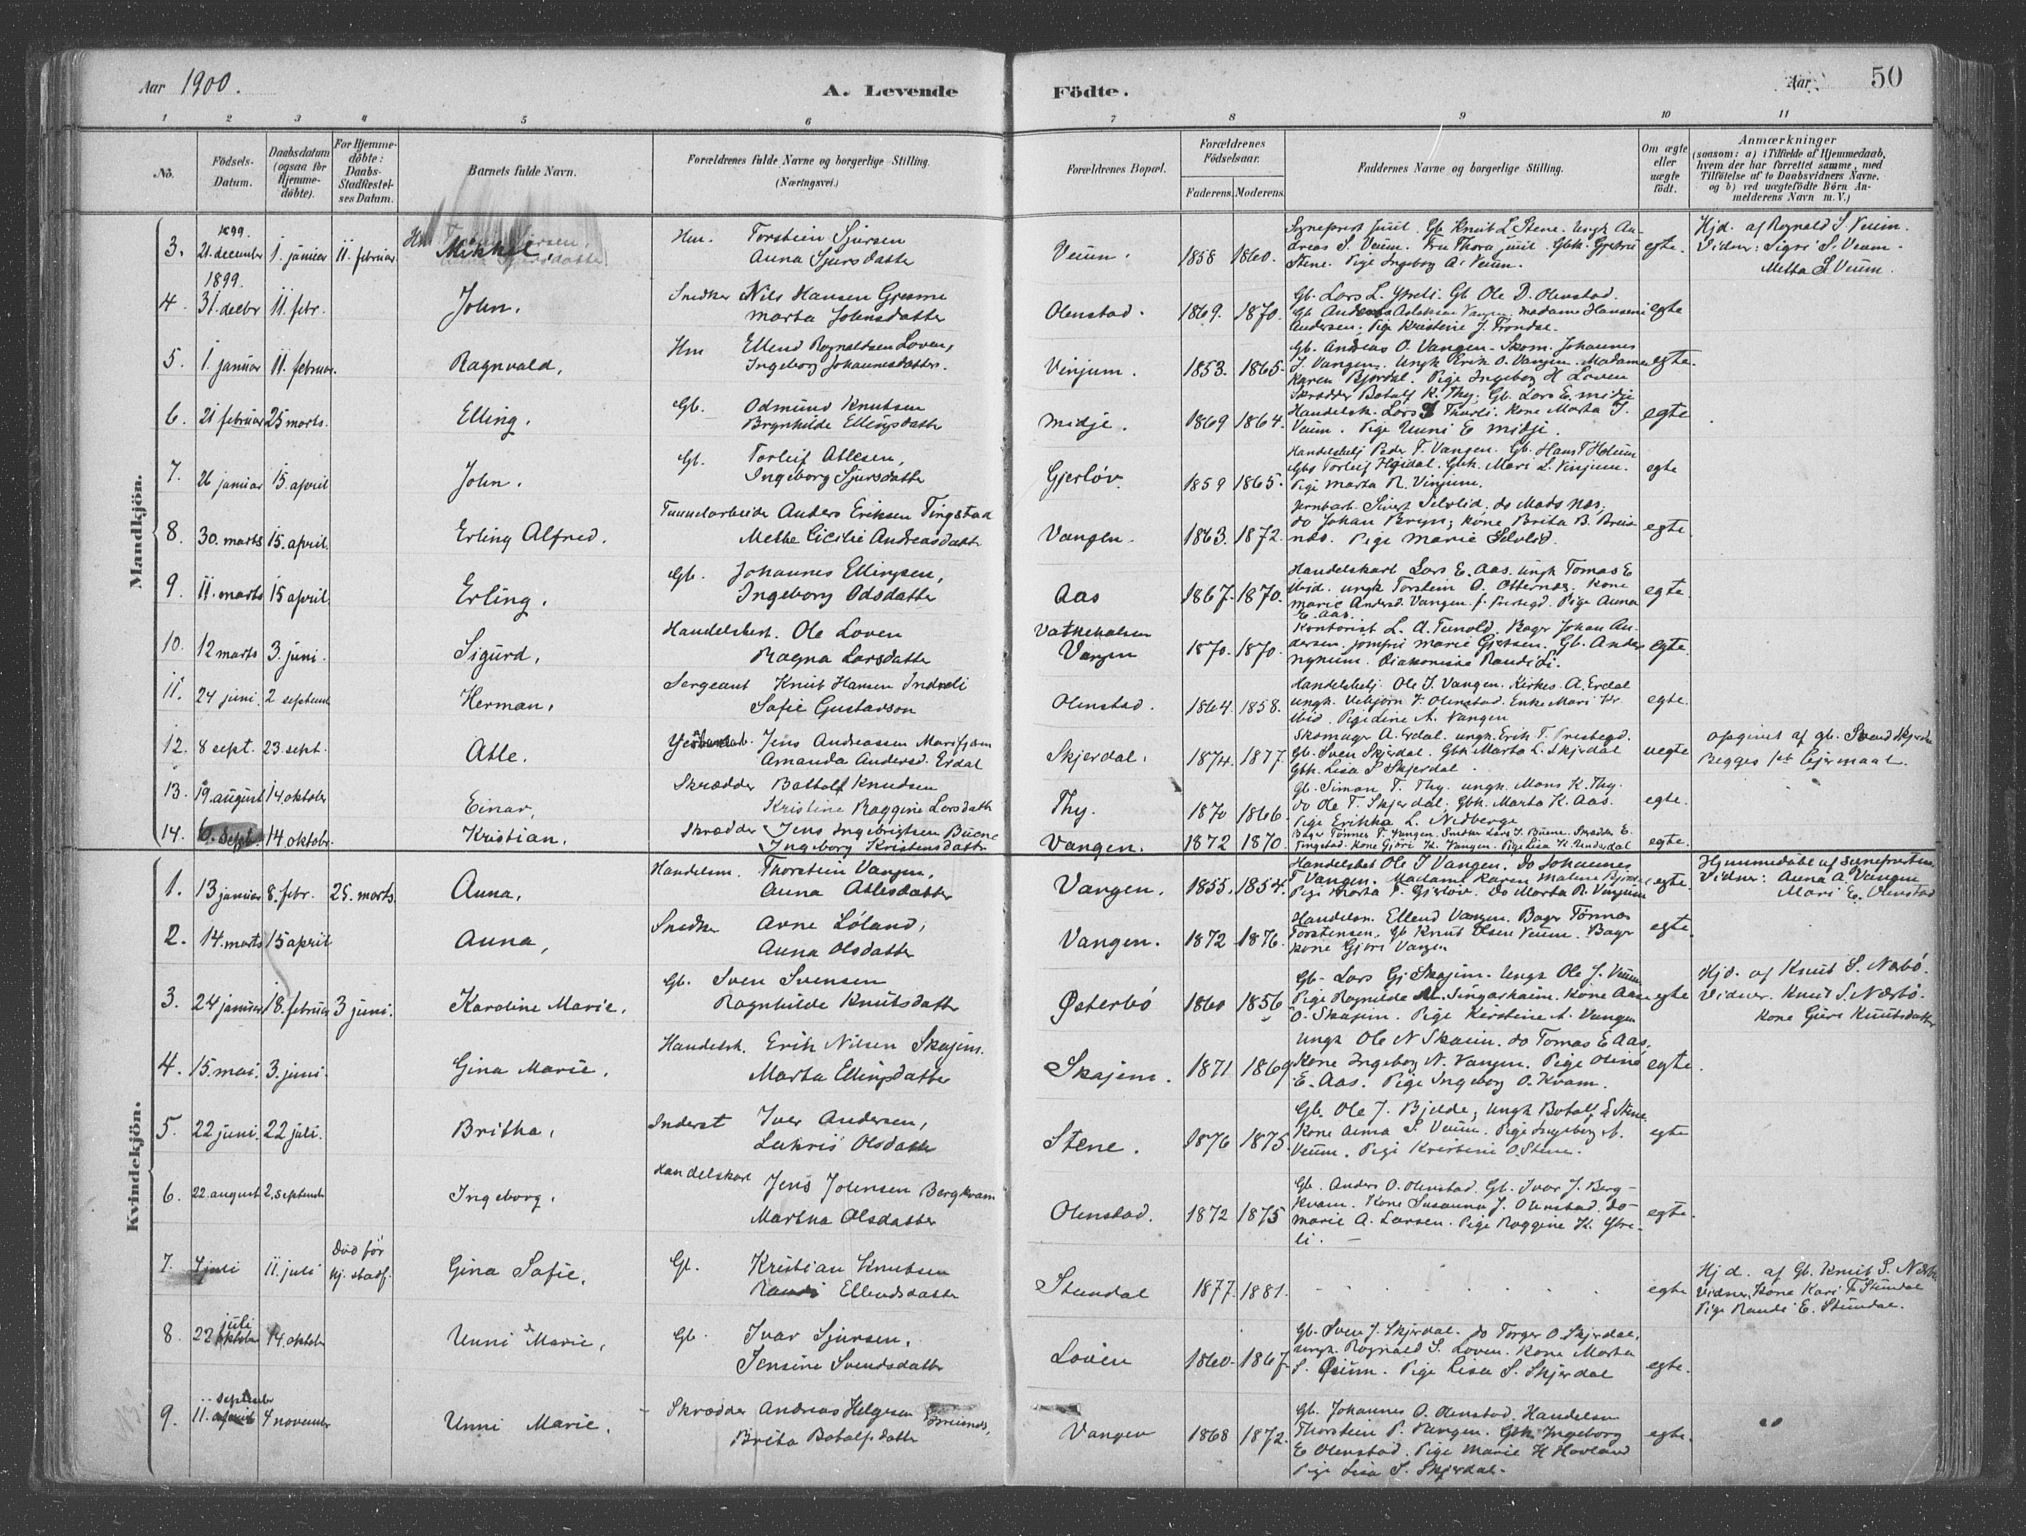 Aar 1900.
A. Levende Födte.
Aar 50
1 2 3 4 5 6 7 8 9 10 11
No.
Födsels-Datum.
Daabsdatum (ogsaa for Hjemme-döbte).
For Hjemme-döbte: Daabs-Stadfæstelses Datum.
Barnets fulde Navn.
Forældrenes fulde Navne og borgerlige Stilling. (Næringsvei.)
Forældrenes Bopæl.
Forældrenes Födselsaar.
Faderens. Moderens.
Faddernes Navne og borgerlige Stilling.
Om ægte eller uægte födt.
Anmærkninger (saasom: a) i Tilfælde af Hjemmedaab, hvem der har forrettet samme, med Tilföielse af to Daabsvidners Navne, og b) ved uægtefödte Börn Anmelderens Navn m. V.)
Mandkjön.
3. 1899. 21. december 1. januar 11. februar Mikkel. Hm. Torstein Sjursen Anna Sjursdatter Veum. 1858 1860. Sogneprest Juul. Gb. Knut L. Stene. Ungk. Andreas S. Veum. Fru Thora Juul. Stene. Pige Ingeborg A. Veum. egte. Hjd. af Rognald S. Veum. Vidner: Sigri S. Veum. Metta S. Veum.
4. 1899. 31. decbr 11. febr. John. Snedker Nils Hansen Marta Johnsdatter Olenstad. 1869. 1870. Gb. Lars L. Ytreli. Gb. Ole D. Olenstad. egte
5. 1. januar 11. februar. Ragnvald. Hm Ellend Rognaldsen Loven, Ingeborg Johannesdatter. Vinjum. 1853. 1865. Gb. Andreas O. Vangen. Skom. Johannes J. Vangen. Ungk. Erik O. Vangen. Madame Karen Bjørdal. Pige Ingeborg H. Loven egte.
6. 21 februar 25 marts. Elling. Gb. Odmund Knutsen Brynhilde Ellingsdatter Midje. 1869 1864. Skrædder Botolf K. Thy. Gb. Lars E. Midje Handelsk. Lars Kone Marta J. Veum. Pige Unni E. Midje. egte
7. 26 januar 15. april John. Gb. Torleif Atlesen, Ingeborg Sjursdatter Gjerløv. 1859 1865. Handelsbetj. Peder T. Vangen. Gb. Hans T. Gbk. Mari L. Vinjum. Pige Marta R. Vinjum. egte
8. 30. marts 15. april. Erling Alfred. Tunnelarbeide Anders Eriksen Tingstad Methe Cicilie Andreasdatter Vangen. 1863. 1872. do Mads Næs, do Johan Bryn; Kone Brita B. Breinæs. Pige Marie egte
9. 11. marts 15 april. Erling. Gb. Johannes Ellingsen, Ingeborg Odsdatter Aas 1867. 1870. Handelskarl Lars E. Aas. Ungk. Tomas E. ibid. ungk. Torstein A. Otternæs, Kone Marie Andersd. Vangen f. Prestegd. Pige Anna E. Aas. egte.
10. 12 marts 3. juni. Sigurd. Handelsbest. Ole Loven Ragna Larsdatter Vangen 1870. 1870. Kontorist L. A. Tunold. Bager Johan Andersen. Jomfru Marie Gjetsen. Gb. Anders egte.
11. 24 juni. 2 septem. Herman. Sergeant Knut Hansen Indreli Sofie Gustavson Olenstad. 1864. 1858. Handelsbetj. Ole J. Vangen. Kirkes. A. Erdal ungk. Vebjørn J. Olenstad. Enke Mari ibid. Pige Line A. Vangen egte.
12. 8 sept. 23. sept. Atle. Jens Andreassen Marifjæren Amanda Andersd. Erdal Skjerdal. 1874. 1877. Skomager A. Erdal. ungk. Erik T. Prestegd. Gb. Sven Skjerdal. Gbk. Marta L. Skjerdal Gbk. Lisa P. Skjerdal. uegte opgivet af gb. Svend Skjerdal Begges 1st Leiermaal.
13. 19. august 14 oktober Einar. Skrædder Bottolf Knudsen Kristine Raggine Larsdatter Thy. 1870 1866. Gb. Simon T. Thy. ungk. Mons K. Thy. do Ole T. Skjerdal. Gbk. Marta K. Aas. Pige Erikka L. Nidberge egte.
14. 6. sept. 14 oktobr. Kristian. Skrædder Jens Ingebrigtsen Buene Ingeborg Kristensdatter Vangen. 1872 1870. Bager Tønnes T. Vangen. Snidker Lars J. Buene. Skrædder E. Tingstad. Kone Gjøri K. Vangen. Pige Lisa K. Underdal egte.
Kvindekjön.
1. 13 januar 8. febr. 25. marts. Anna. Handelsm. Thorstein Vangen, Anna Atlesdatter Vangen. 1855. 1854. Handelsbet Ole J. Vangen. Do Johannes T. Vangen. Madame Karen Malene Pige Marta T. Gjerløv. Do Marta R. Vinjum egte. Hjemmedøbt af Vidner: Anna A. Vangen Mari E. Olenstad
2. 14. marts 15 april Anna. Snedker Arne Løland, Anna Olsdatter Vangen. 1872 1876. Handelsm. Ellend Vangen. Bager Tønnes Torstensen. Gb Knut Olsen Veum. Bager kone Gjøri Vangen egte.
3. 24 januar 18. februar 3 juni. Karoline Marie. Gb. Sven Svensen Ragnhilde Knutsdatter Østerbø 1860 1856 Gb. Lars Gj. Skajem. Ungk. Ole J. Veum Pige Rognilde Kone Anna O. Skajem. Pige Kerstine A. Vangen egte Hjd. af Knut S. Næsbø. Vidner. Knut S. Næsbø. Kone Guri Knutsdatter
4. 15. mai. 3. juni. Gina Marie. Handelsk. Erik Nilsen Skajem. Marta Ellingsdatter Skajem. 1871 1869 Ungk Ole N Skaim. do Tomas E Aas. Kone Ingeborg N. Vangen. Pige Oline E. Aas. Pige Ingeborg O. Kvam. egte
5. 22 juni. 22 juli. Britha. Inderst Iver Andersen, Lukris Olsdatter Stene. 1876 1875. Gb. Ole J. Bjelde, ungk Botolf E. Stene. Kone Anna S. Veum. Pige Ingeborg A. Veum. Pige Kristine O. Stene. egte
6. 22. august 2. septembr Ingeborg. Handelskarl Jens Johnsen Bergkvam Martha Olsdatter Olenstad. 1872 1875 Gb. Anders O. Olenstad. Gb. Ivar J. Bergkvam. Kone Susanna J. Olenstad. do Marie A. Larsen. Pige Raggine K. Ytreli. egte.
7. 4 juli 11. juli Død før hj. stadf. Gina Sofie. Gb. Kristian Knutsen Randi Ellendsdatter Stundal 1877. 1881. egte Hjd. af Gb. Knut S. Næsbø Vidner. Kone Kari T. Stundal Pige Randi E. Stundal.
8. 22 juli oktober 14. oktobr Unni Marie. Gb. Ivar Sjursen. Jensine Svendsdatter Loven 1860 1867. Gb. Sven J. Skjerdal. do Torger O. Skjerdal. ungk. Rognald S. Loven. Kone Marta S. Pige Lisa S. Skjerdal egte.
9. 11. september april 4 november Unni Marie. Skrædder Andreas Helgesen Brita Botolfsdatter Vangen 1868 1872. Gb. Johannes O. Olenstad. Handelsm Thorstein P. Vangen. Gbk Ingeborg E Olenstad. Pige Marie H Hovland Pige Lisa S. Skjerdal. egte.